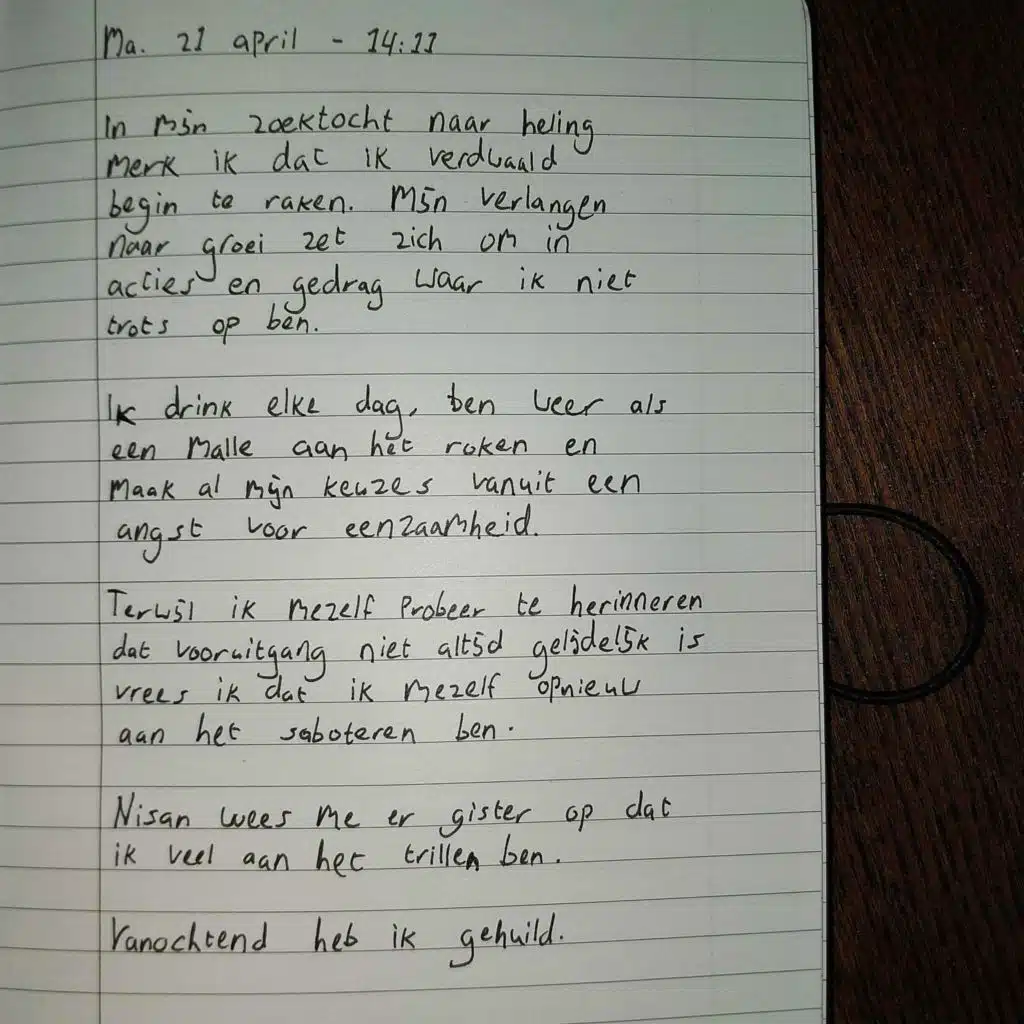 Ma. 21 april - 14:11
In mijn zoektocht naar heling
merk ik dat ik verdwaald
begin te raken. Mijn verlangen
naar groei zet zich om in
acties en gedrag waar ik niet
trots op ben.
Ik drink elke dag, ben weer als
een malle aan het roken en
maak al mijn keuzes vanuit een
angst voor eenzaamheid.
Terwijl ik mezelf probeer te herinneren
dat vooruitgang niet altijd gelijdelijk is
vrees ik dat ik mezelf opnieuw
aan het saboteren ben.
Nisan wees me er gister op dat
ik veel aan het trillen ben.
Vanochtend heb ik gehuild.